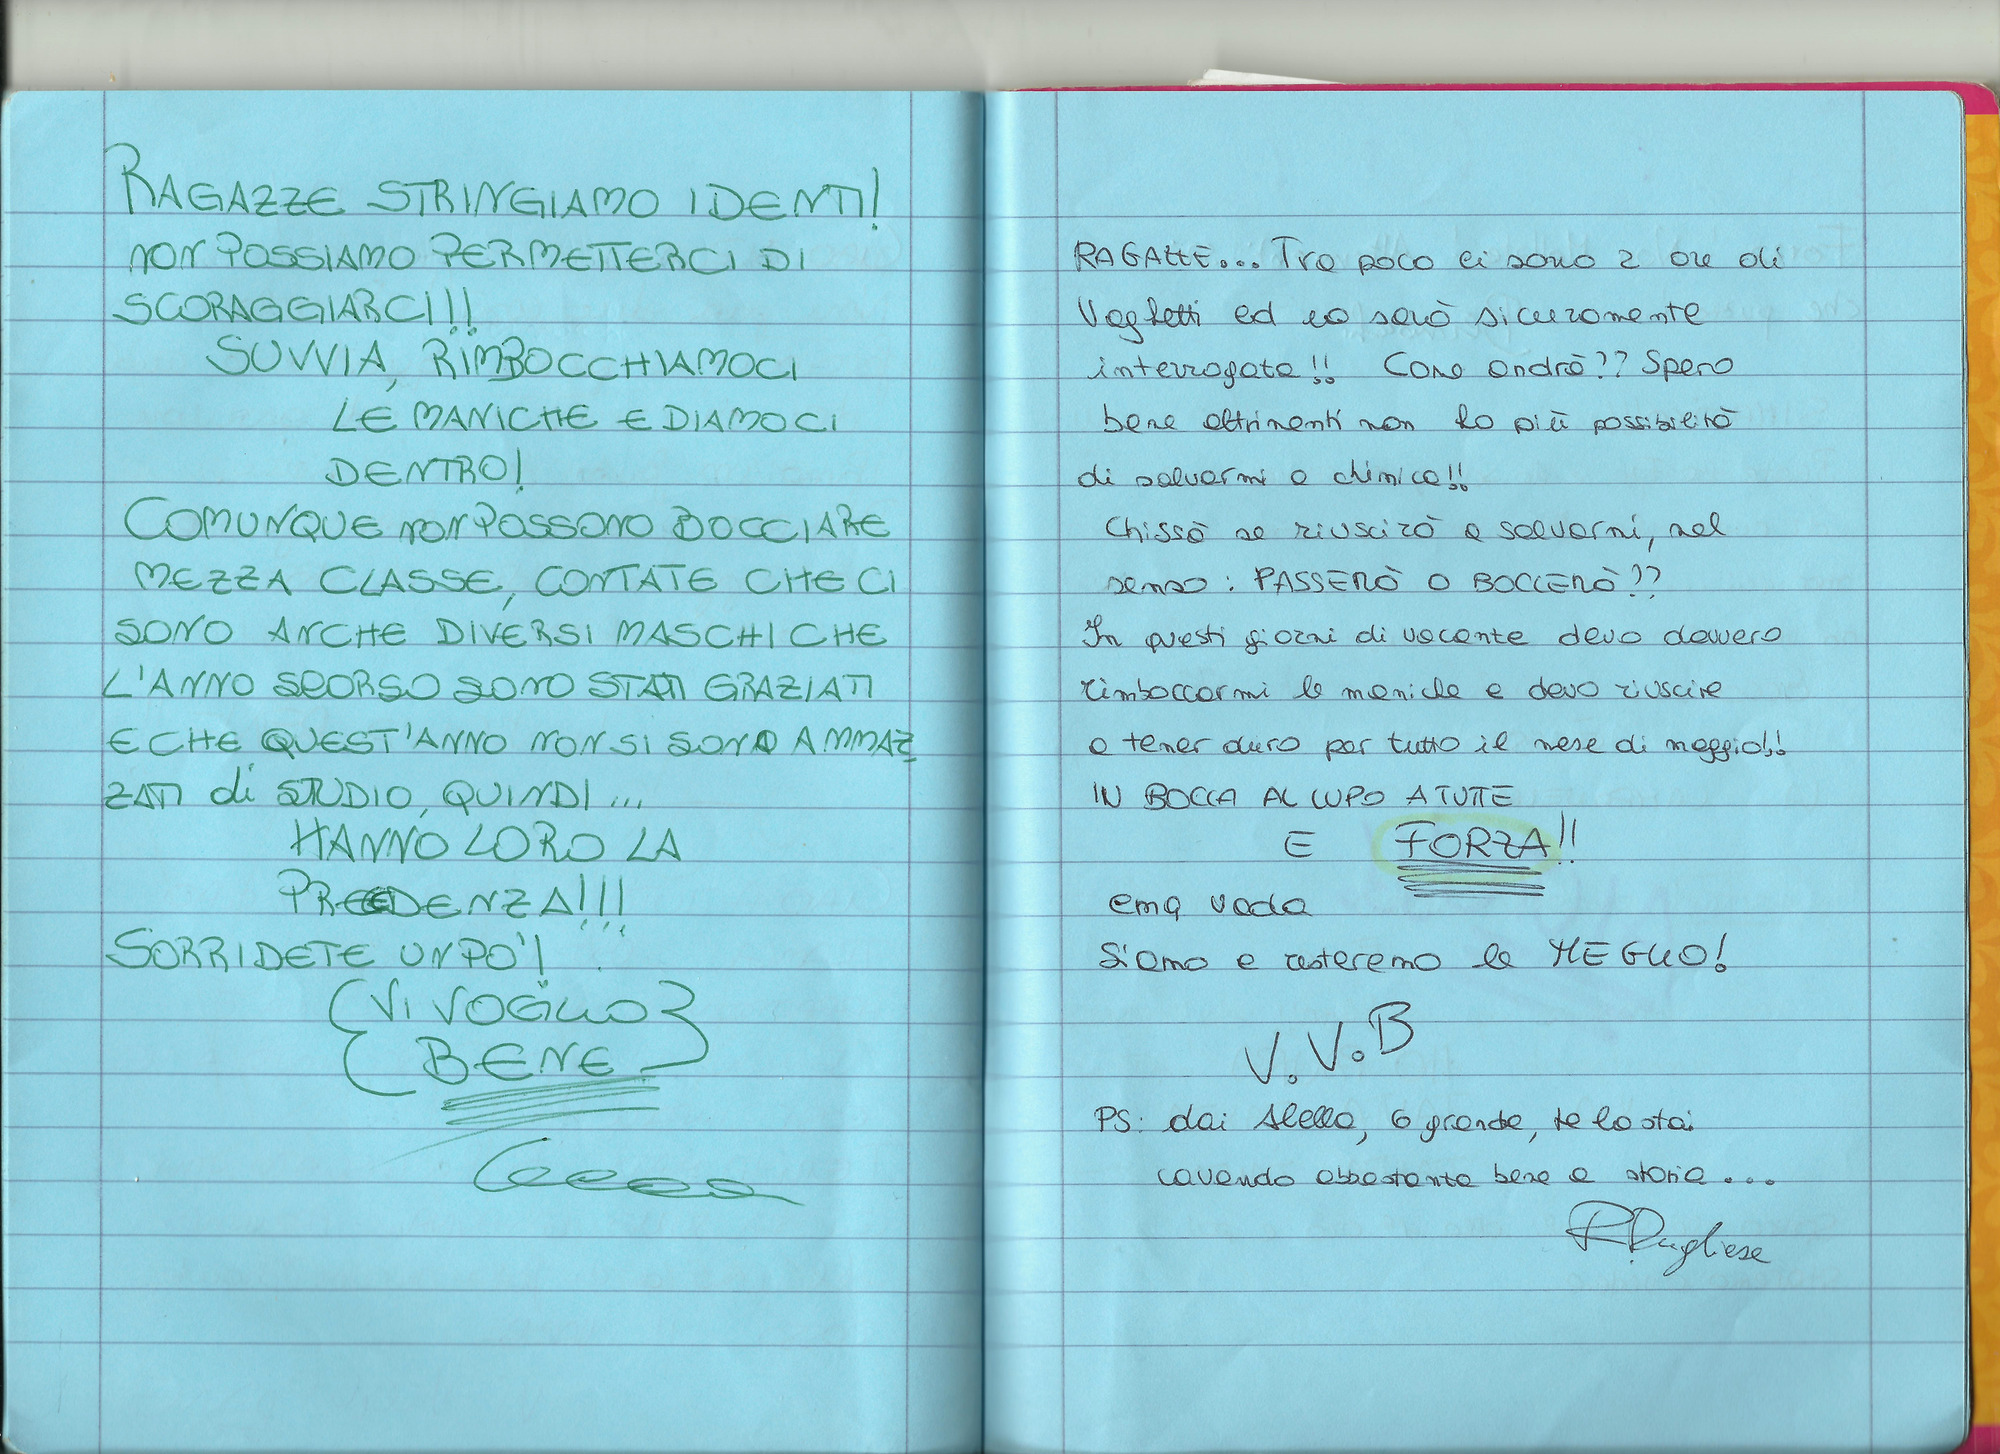 RAGAZZE STRINGIAMO I DENTI!
NON POSSIAMO PERMETTERCI DI
SCORAGGIARCI!!!
SUVVIA, RIMBOCCHIAMOCI
LE MANICHE E DIAMOCI
DENTRO!
COMUNQUE NON POSSONO BOCCIARE
MEZZA CLASSE, CONTATE CHE CI
SONO ANCHE DIVERSI MASCHI CHE
L'ANNO SCORSO SONO STATI GRAZIATI
E CHE QUEST'ANNO NON SI SONO AMMAZ
ZATI di STUDIO, QUINDI...
HANNO LORO LA
PRECEDENZA!!!
SORRIDETE UN PO'!
{VI VOGLIO}
BENE
RAGAZZE... Tra poco ci sono 2 ore di
Vaghetti ed io sarò sicuramente
interrogata!! Come andrà?? Spero
bene altrimenti non ho più possibilità
di salvarmi a chimica!!
Chissà se riuscirò a salvarmi, nel
senso: PASSERÒ O BOCCERÒ??
In questi giorni di vacante devo davvero
rimboccarmi le maniche e devo riuscire
a tener duro per tutto il mese di maggio!!
IN BOCCA AL LUPO A TUTTE
E FORZA!!
come vada
Siamo e resteremo le MEGLIO!
V.V.B
PS: dai Alella, 6 grande, te lo stai
cavando abbastanza bene a storia...
R Pugliese